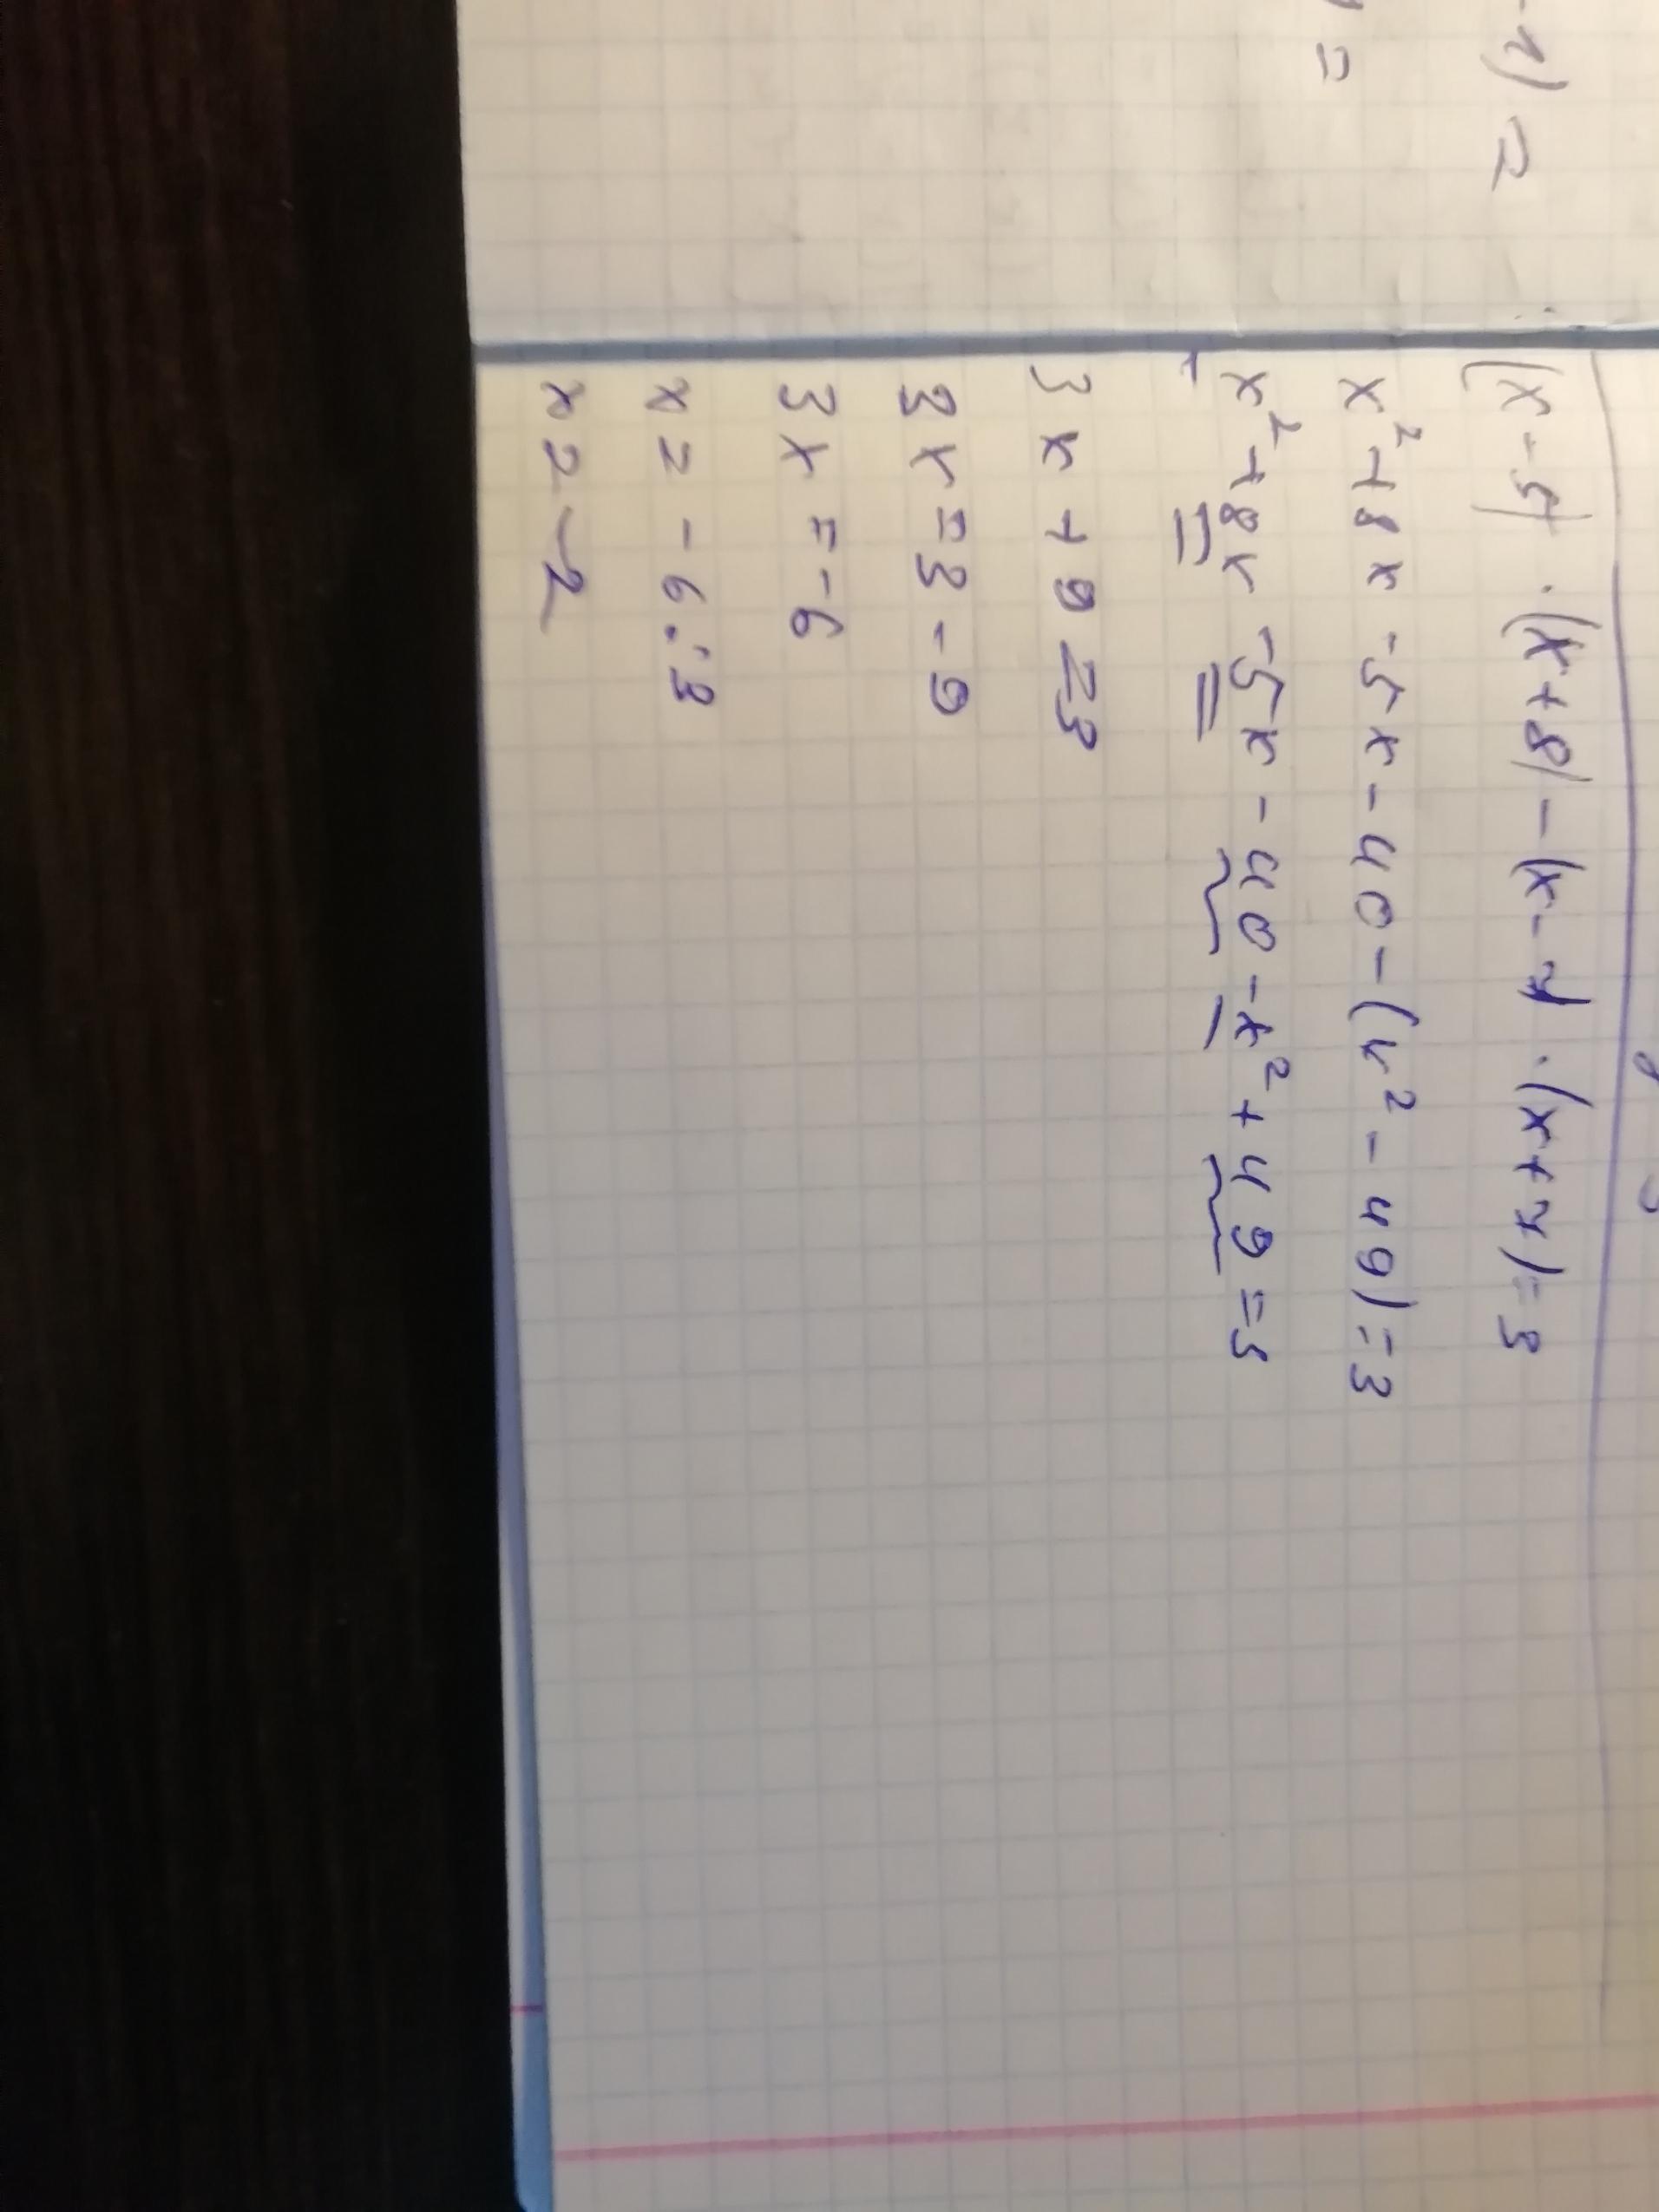 -1) =
=
(x-5) · (x+8) - (x-7) · (x+7) = 3
x²+8x-5x-40-(x²-49)=3
x²+8x-5x-40-x²+49=3
3x+9=3
3x=3-9
3x=-6
x=-6:3
x=-2